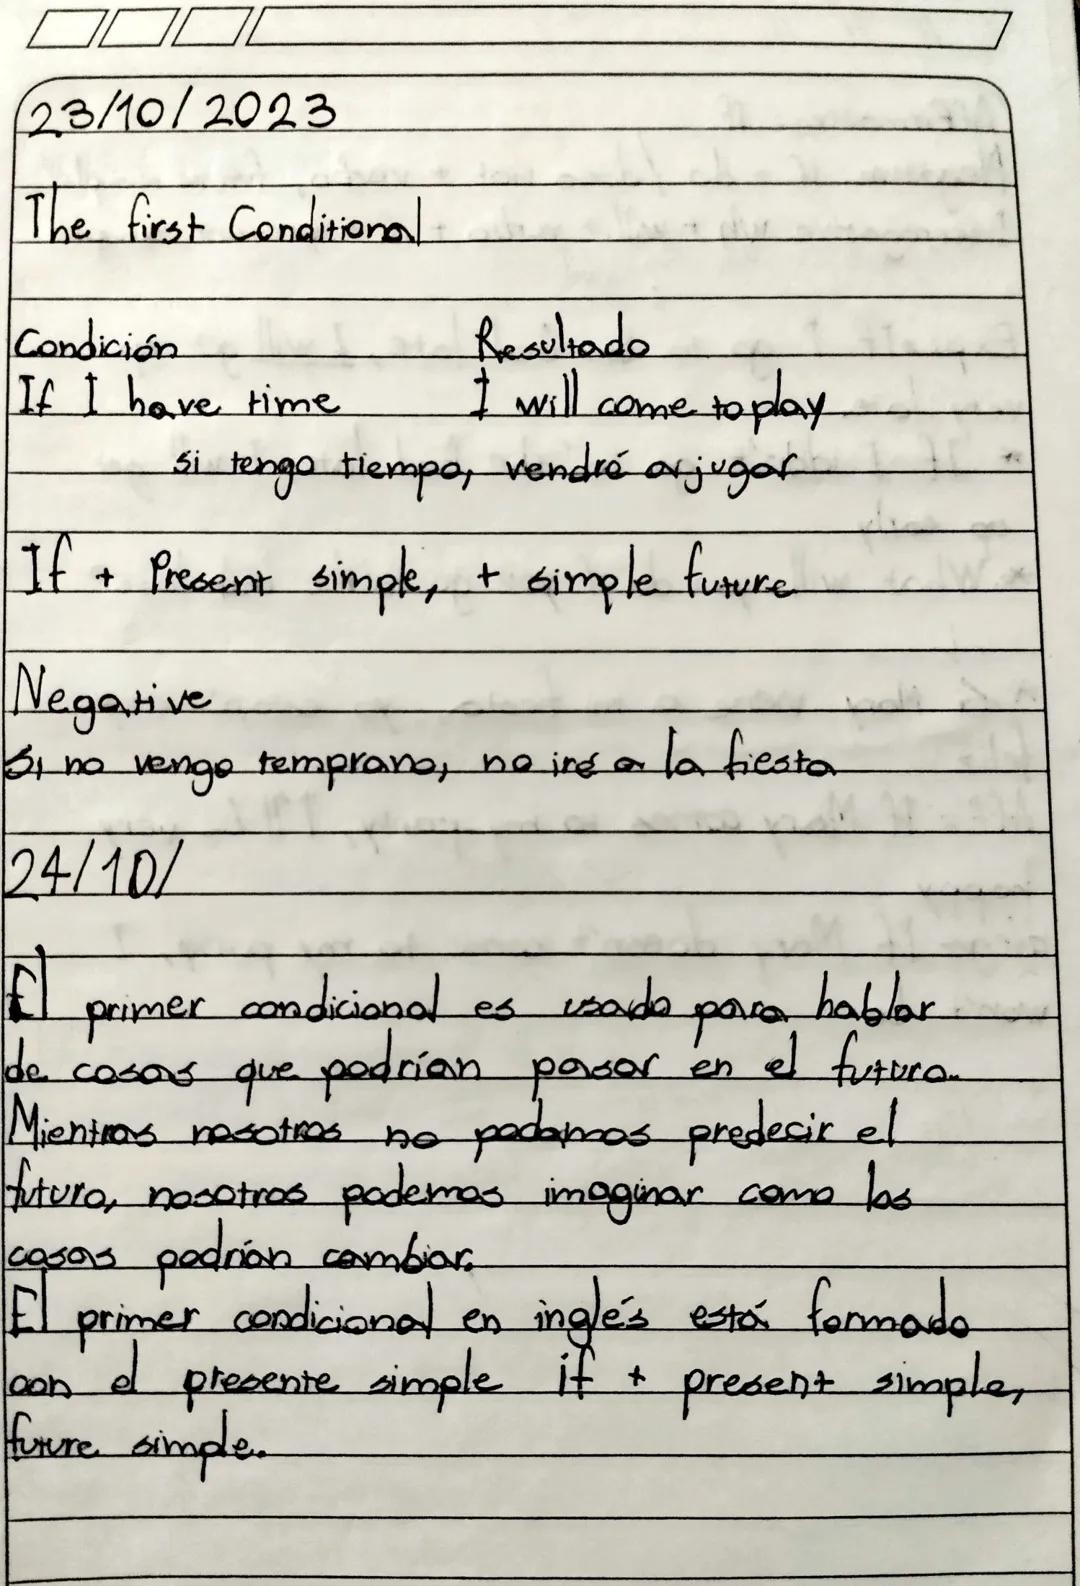 23/10/2023
The first Conditional
Condición Resultado
If I have time I will come to play
si tengo tiempo, vendré a jugar
If + Present simple, + simple future
Negative
Si no vengo temprano, no iré a la fiesta
24/10/
El primer condicional es usado para hablar
de cosas que podrían pasar en el futuro.
Mientras nosotros no podamos predecir el
futuro, nosotros podemos imaginar como las
cosas podrían cambiar.
El primer condicional en inglés está formado
con el presente simple if + present simple,
future simple.